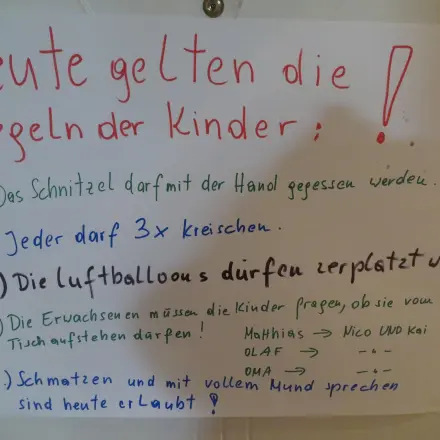 eute gelten die !
egeln der Kinder:
Das Schnitzel darf mit der Hand gegessen werden.
Jeder darf 3x kreischen.
) Die Luftballoons dürfen zerplatzt w
) Die Erwachsenen müssen die Kinder fragen, ob sie vom
Tisch aufstehen dürfen!
Matthias → Nico UND Kai
OLAF → -"-
OMA → -"-
.) Schmatzen und mit vollem Mund sprechen
sind heute erlaubt !